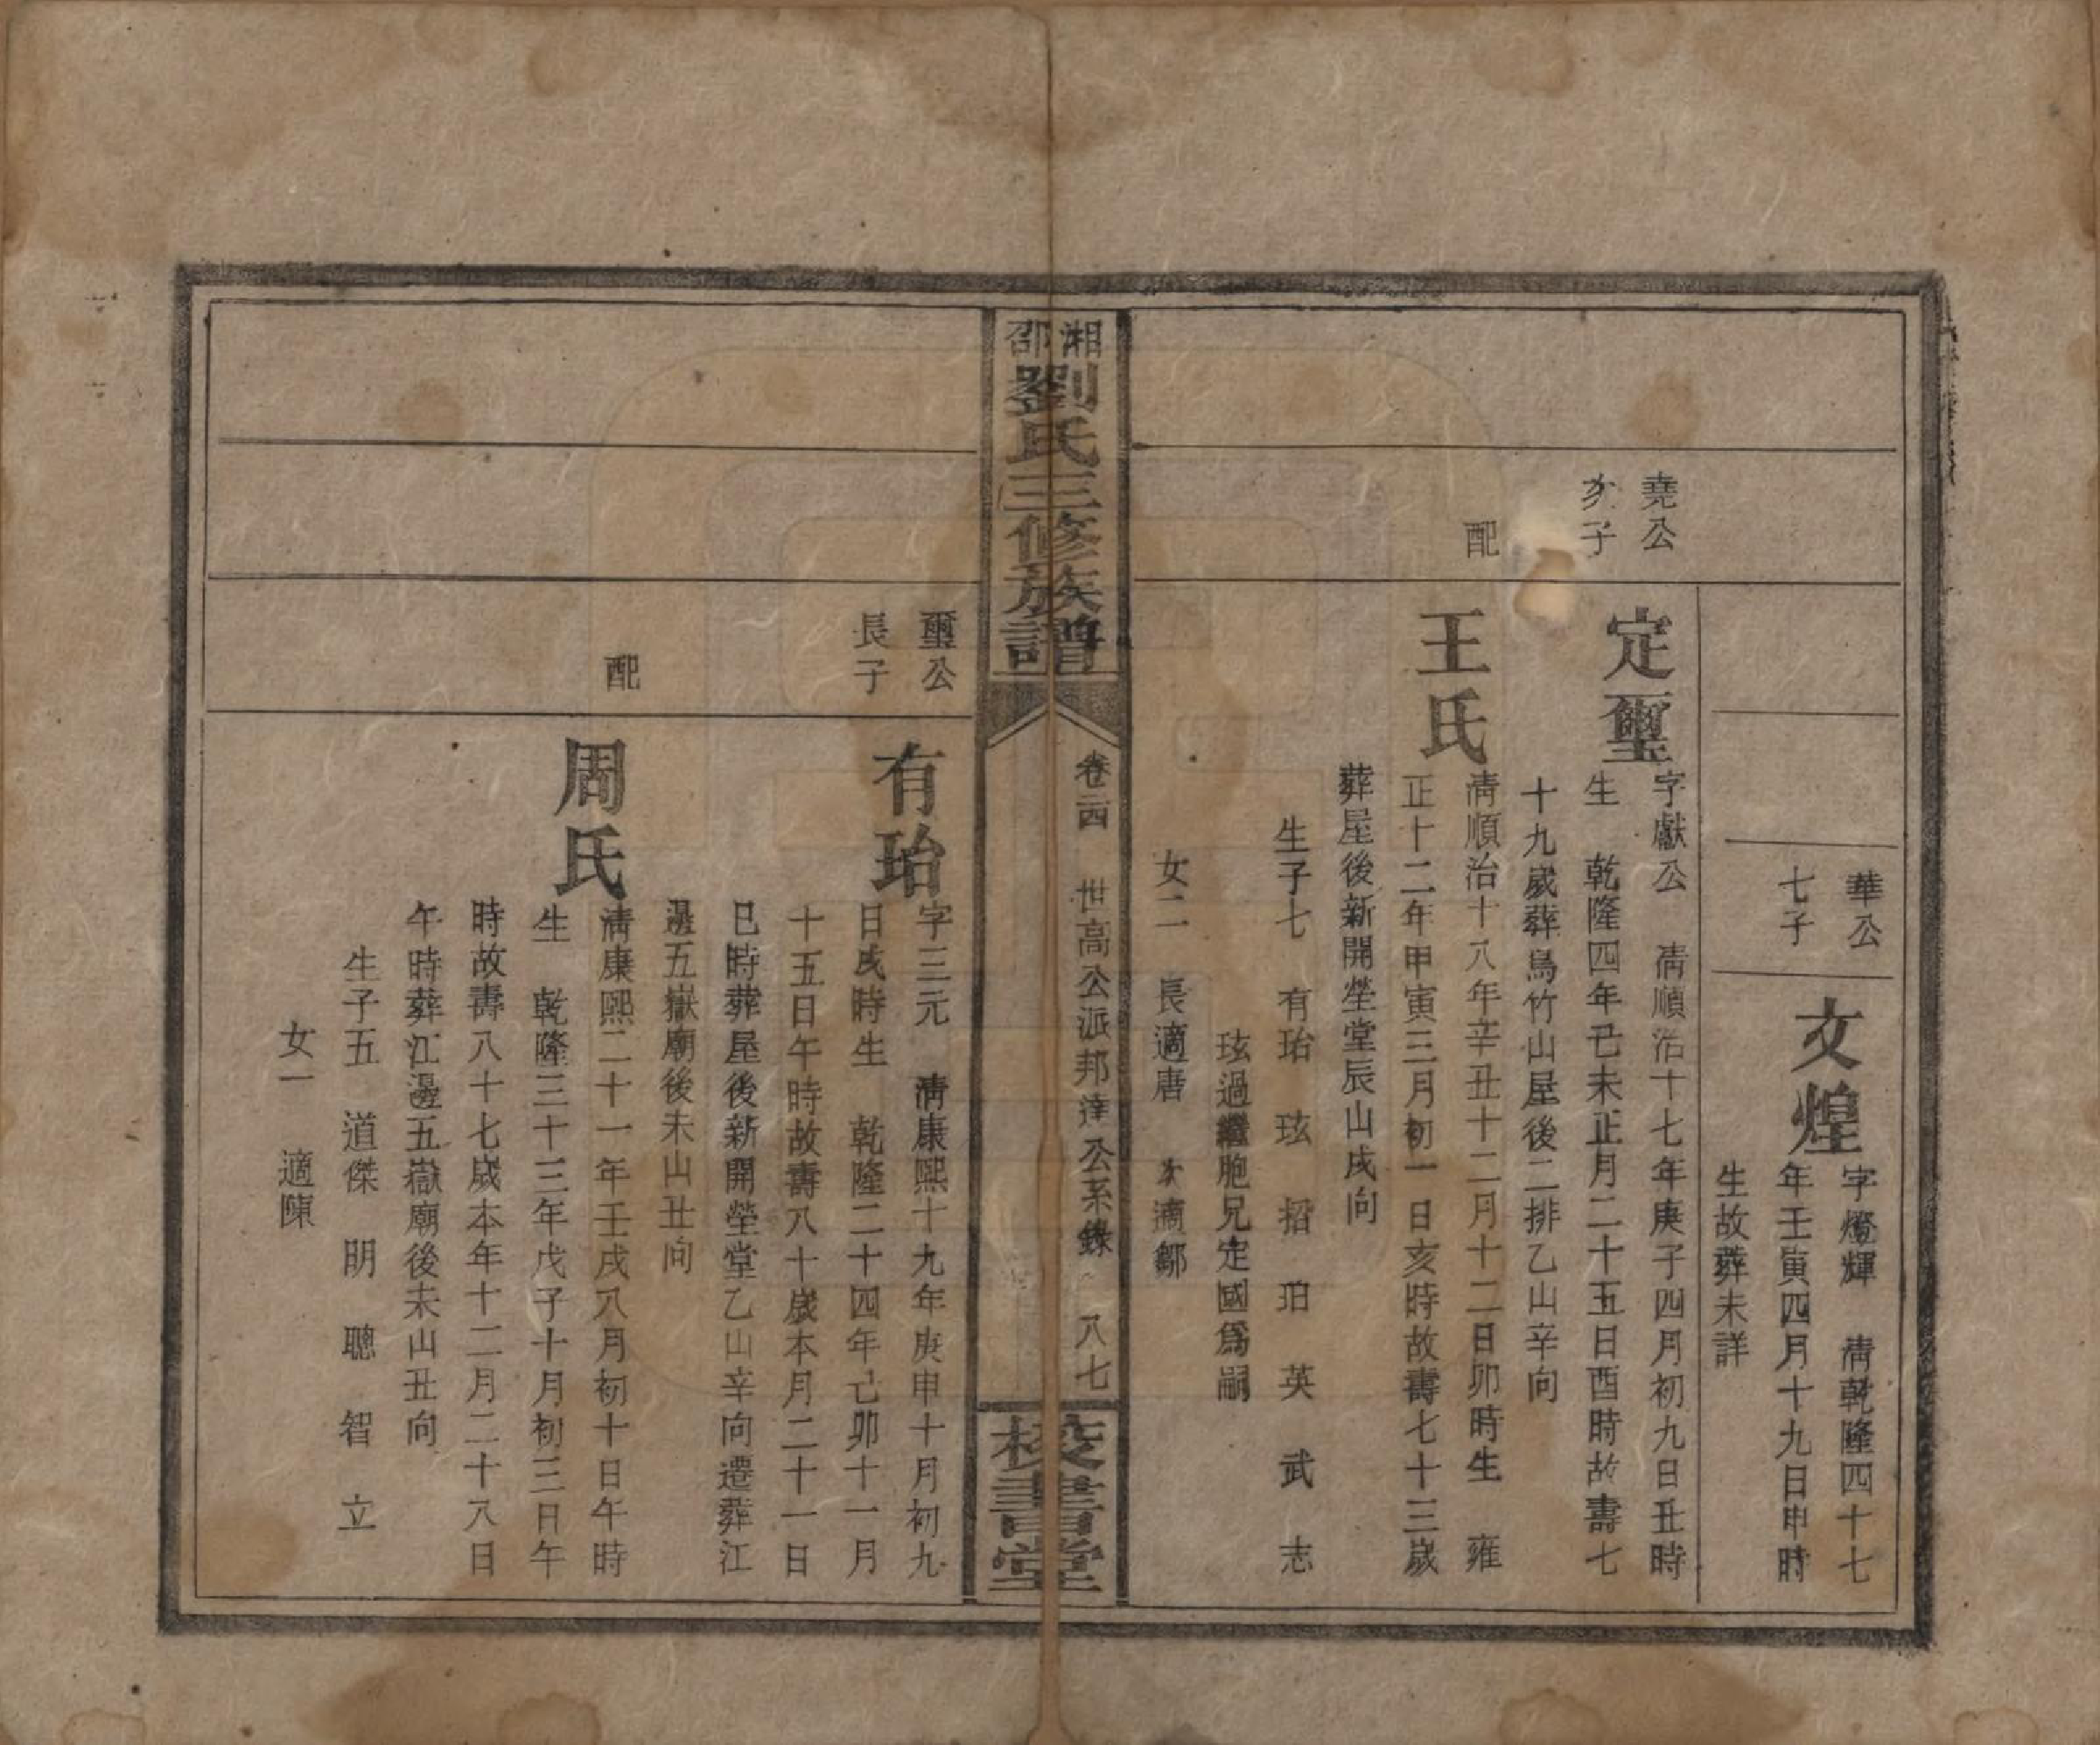 華公
七子
文煌
字燈輝　清乾隆四十七
年壬寅四月十九日申時
生故葬未詳
堯公
次子
定璽
字獻公　清順治十七年庚子四月初九日丑時
生　乾隆四年己未正月二十五日酉時故壽七
十九歲葬鳥竹山屋後二排乙山辛向
配
王氏
清順治十八年辛丑十二月十二日卯時生　雍
正十二年甲寅三月初一日亥時故壽七十三歲
葬屋後新開塋堂辰山戌向
生子七　有珆　玹　招　珀　英　武　志
玹過繼胞兄定國爲嗣
女二　長適唐　次適鄒
湘邵劉氏三修族譜
卷二四　世高公派邦達公系錄　八七
校書堂
璽公
長子
有珆
字三元　清康熙十九年庚申十月初九
日戌時生　乾隆二十四年己卯十一月
十五日午時故壽八十歲本月二十一日
巳時葬屋後新開塋堂乙山辛向遷葬江
邊五嶽廟後未山丑向
配
周氏
清康熙二十一年壬戌八月初十日午時
生　乾隆三十三年戊子十月初三日午
時故壽八十七歲本年十二月二十八日
午時葬江邊五嶽廟後未山丑向
生子五　道傑　明　聰　智　立
女一　適陳